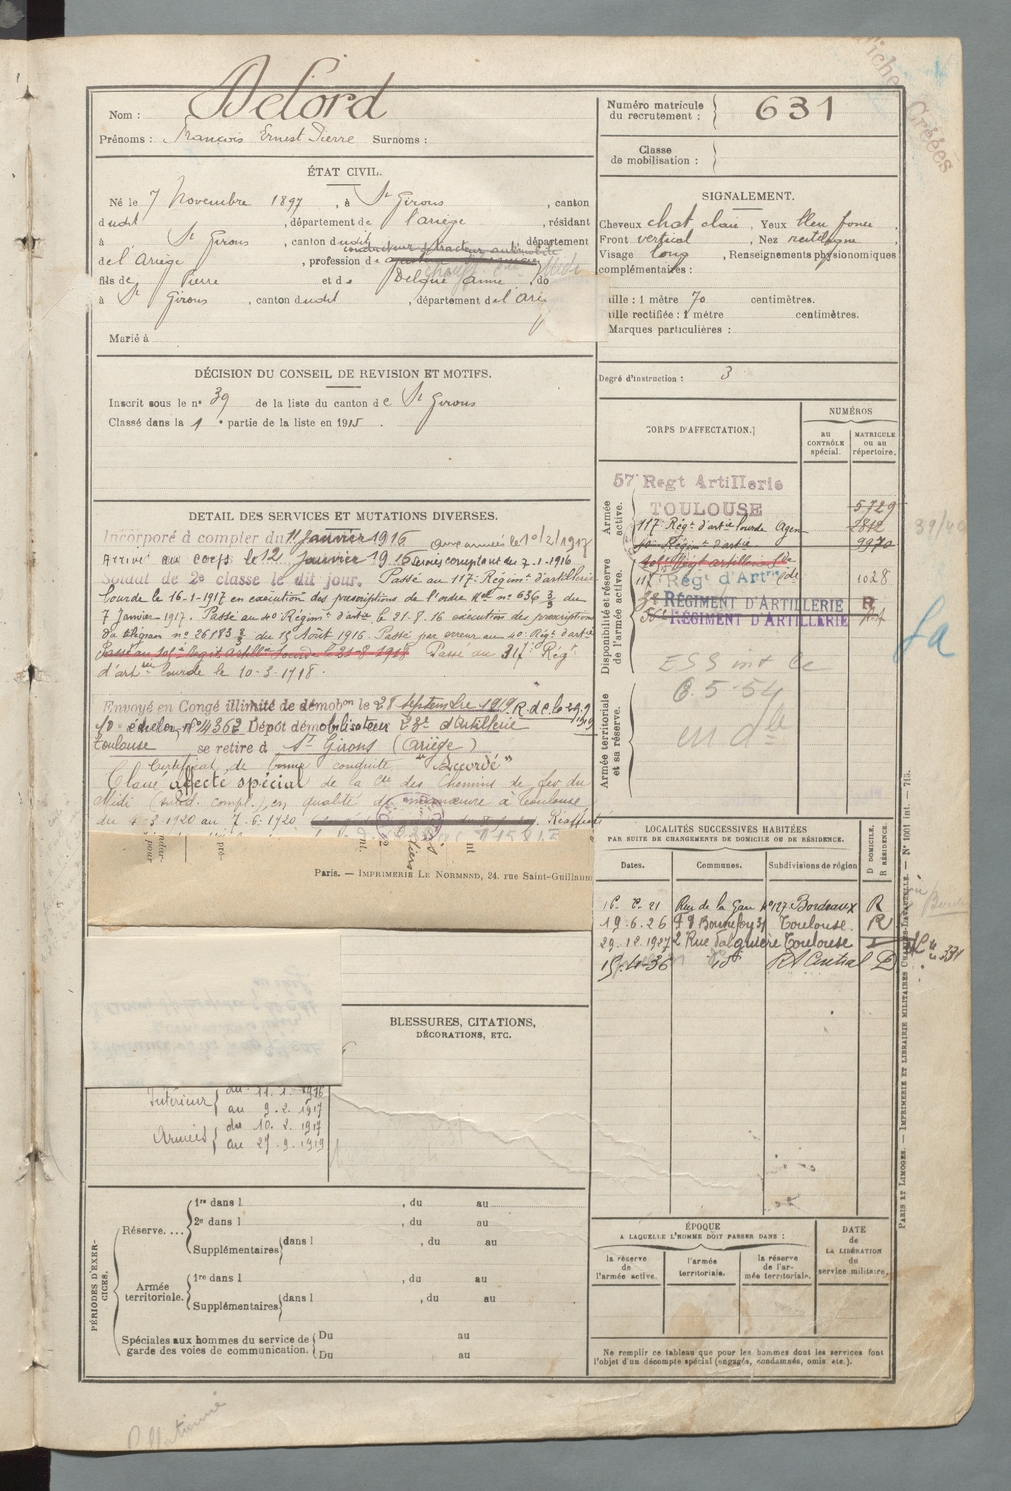 Nom : Delord
Prénoms : François Ernest Pierre Surnoms :
Numéro matricule du recrutement : 631
Classe de mobilisation :
ÉTAT CIVIL.
Né le 7 Novembre 1897, à St Girons, canton
dudit, département de l'ariège, résidant
à St Girons, canton dudit, département
de l'Ariège, profession de conducteur tracteur automobile
fils de Pierre et de Delque anne, do
à St Girons, canton dudit, département de l'ari
Marié à
SIGNALEMENT.
Cheveux chat clair, Yeux bleu foncé
Front vertical, Nez rectiligne
Visage long, Renseignements physionomiques
complémentaires :
Taille : 1 mètre 70 centimètres.
Taille rectifiée : 1 mètre centimètres.
Marques particulières :
Degré d'instruction : 3
DÉCISION DU CONSEIL DE REVISION ET MOTIFS.
Inscrit sous le n° 39 de la liste du canton de St Girons
Classé dans la 1e partie de la liste en 1915.
CORPS D'AFFECTATION.
NUMÉROS
AU CONTRÔLE spécial.
MATRICULE ou au répertoire.
Armée active.
57e Regt Artillerie TOULOUSE 5729
117e Régt d'artie lourde Agen 2812
40e Régiment d'artie 9970
117 Régt d'Artrie Lde 1028
RÉGIMENT D'ARTILLERIE R
RÉGIMENT D'ARTILLERIE
Disponibilité et réserve de l'armée active.
6.5.54
Armée territoriale et sa réserve.
DETAIL DES SERVICES ET MUTATIONS DIVERSES.
Incorporé à compter du 11 Janvier 1916 aux armées le 10/2/1917
Arrivé au corps le 12 Janvier 1916 Services comptant du 7-1-1916
Soldat de 2e classe le dit jour. Passé au 117e Régimt d'artillerie
lourde le 16-1-1917 en exécution des prescriptions de l'ordre Mel n° 636 3/3 du
7 Janvier 1917. Passé au 40e Régimt d'artie le 21-8-16 exécution des prescriptions
du télégram n° 26183 3/3 du 15 Août 1916. Passé par erreur au 40e Régt d'artie
Passé au 317e Régt
d'artrie lourde le 10-3-1918.
Envoyé en Congé illimité de démobon le 28 Septembre 1919 R.d.C. le 29.9
10e échelon, N° 4362 Dépôt démobilisateur 23e d'Artillerie
Toulouse se retire à St Girons (Ariège)
Certificat de bonne conduite "Accordé"
Classé affecté spécial de la Cie des Chemins de fer du
Midi (subd. compl.) en qualité de manœuvre à Toulouse
du 4-3-1920 au 7-6-1920 Réaffecté
Paris. — IMPRIMERIE LE NORMAND, 24, rue Saint-Guillaum
LOCALITÉS SUCCESSIVES HABITÉES
PAR SUITE DE CHANGEMENTS DE DOMICILE OU DE RÉSIDENCE.
Dates. Communes. Subdivisions de région
D DOMICILE. R RÉSIDENCE.
Rue de la Gare N°127 Bordeaux R
19.6.26 Bonnefoy 31 Toulouse. R
29.12.1927 2 Rue Dalguière Toulouse
15.4-36 Rt Central D
BLESSURES, CITATIONS,
DÉCORATIONS, ETC.
Intérieur du 11.1.1916
au 9.2.1917
Armées du 10.2.1917
au 27.9.1919
PÉRIODES D'EXERCICES.
Réserve.... 1re dans l , du au
2e dans l , du au
Supplémentaires dans l , du au
Armée territoriale. 1re dans l , du au
Supplémentaires dans l , du au
Spéciales aux hommes du service de garde des voies de communication. Du au
Du au
ÉPOQUE
A LAQUELLE L'HOMME DOIT PASSER DANS :
la réserve de l'armée active.
l'armée territoriale.
la réserve de l'armée territoriale.
DATE de LA LIBÉRATION du service militaire.
Ne remplir ce tableau que pour les hommes dont les services font
l'objet d'un décompte spécial (engagés, condamnés, omis etc.).
PARIS ET LIMOGES. — IMPRIMERIE ET LIBRAIRIE MILITAIRES CHARLES-LAVAUZELLE. — N° 1001 int. — 715.